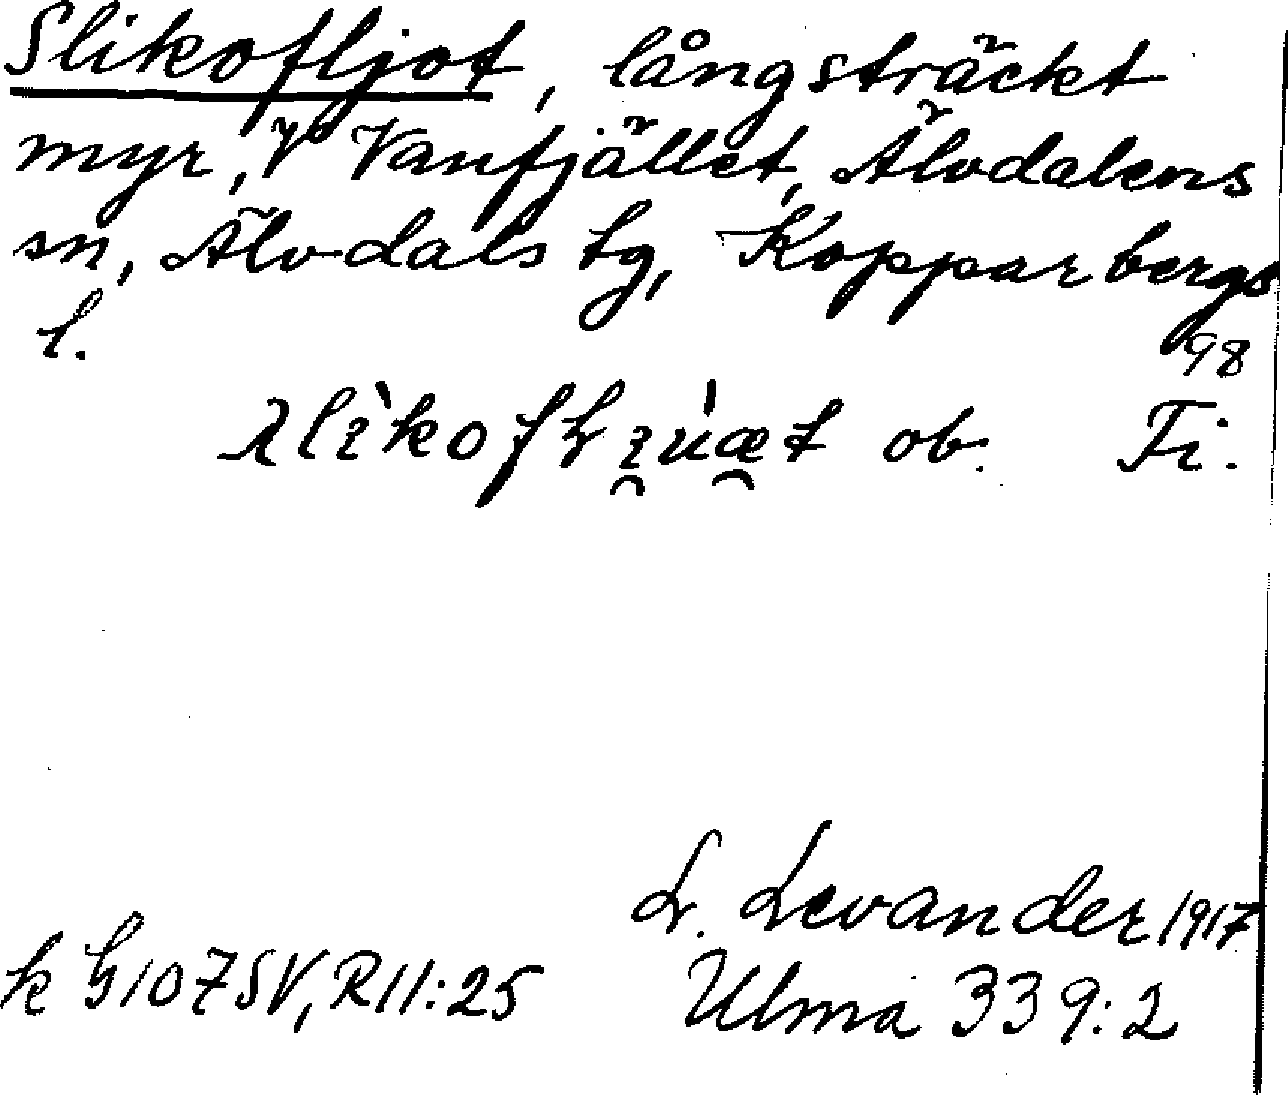 Slikofljot, långsträckt
myr, V Vanfjället, Älvdalens
sn, Älvdals tg, Kopparbergs
l. 98
ob. Ti.
L. Levander 1917
k G107SV, R11:25 Ulma 339:2